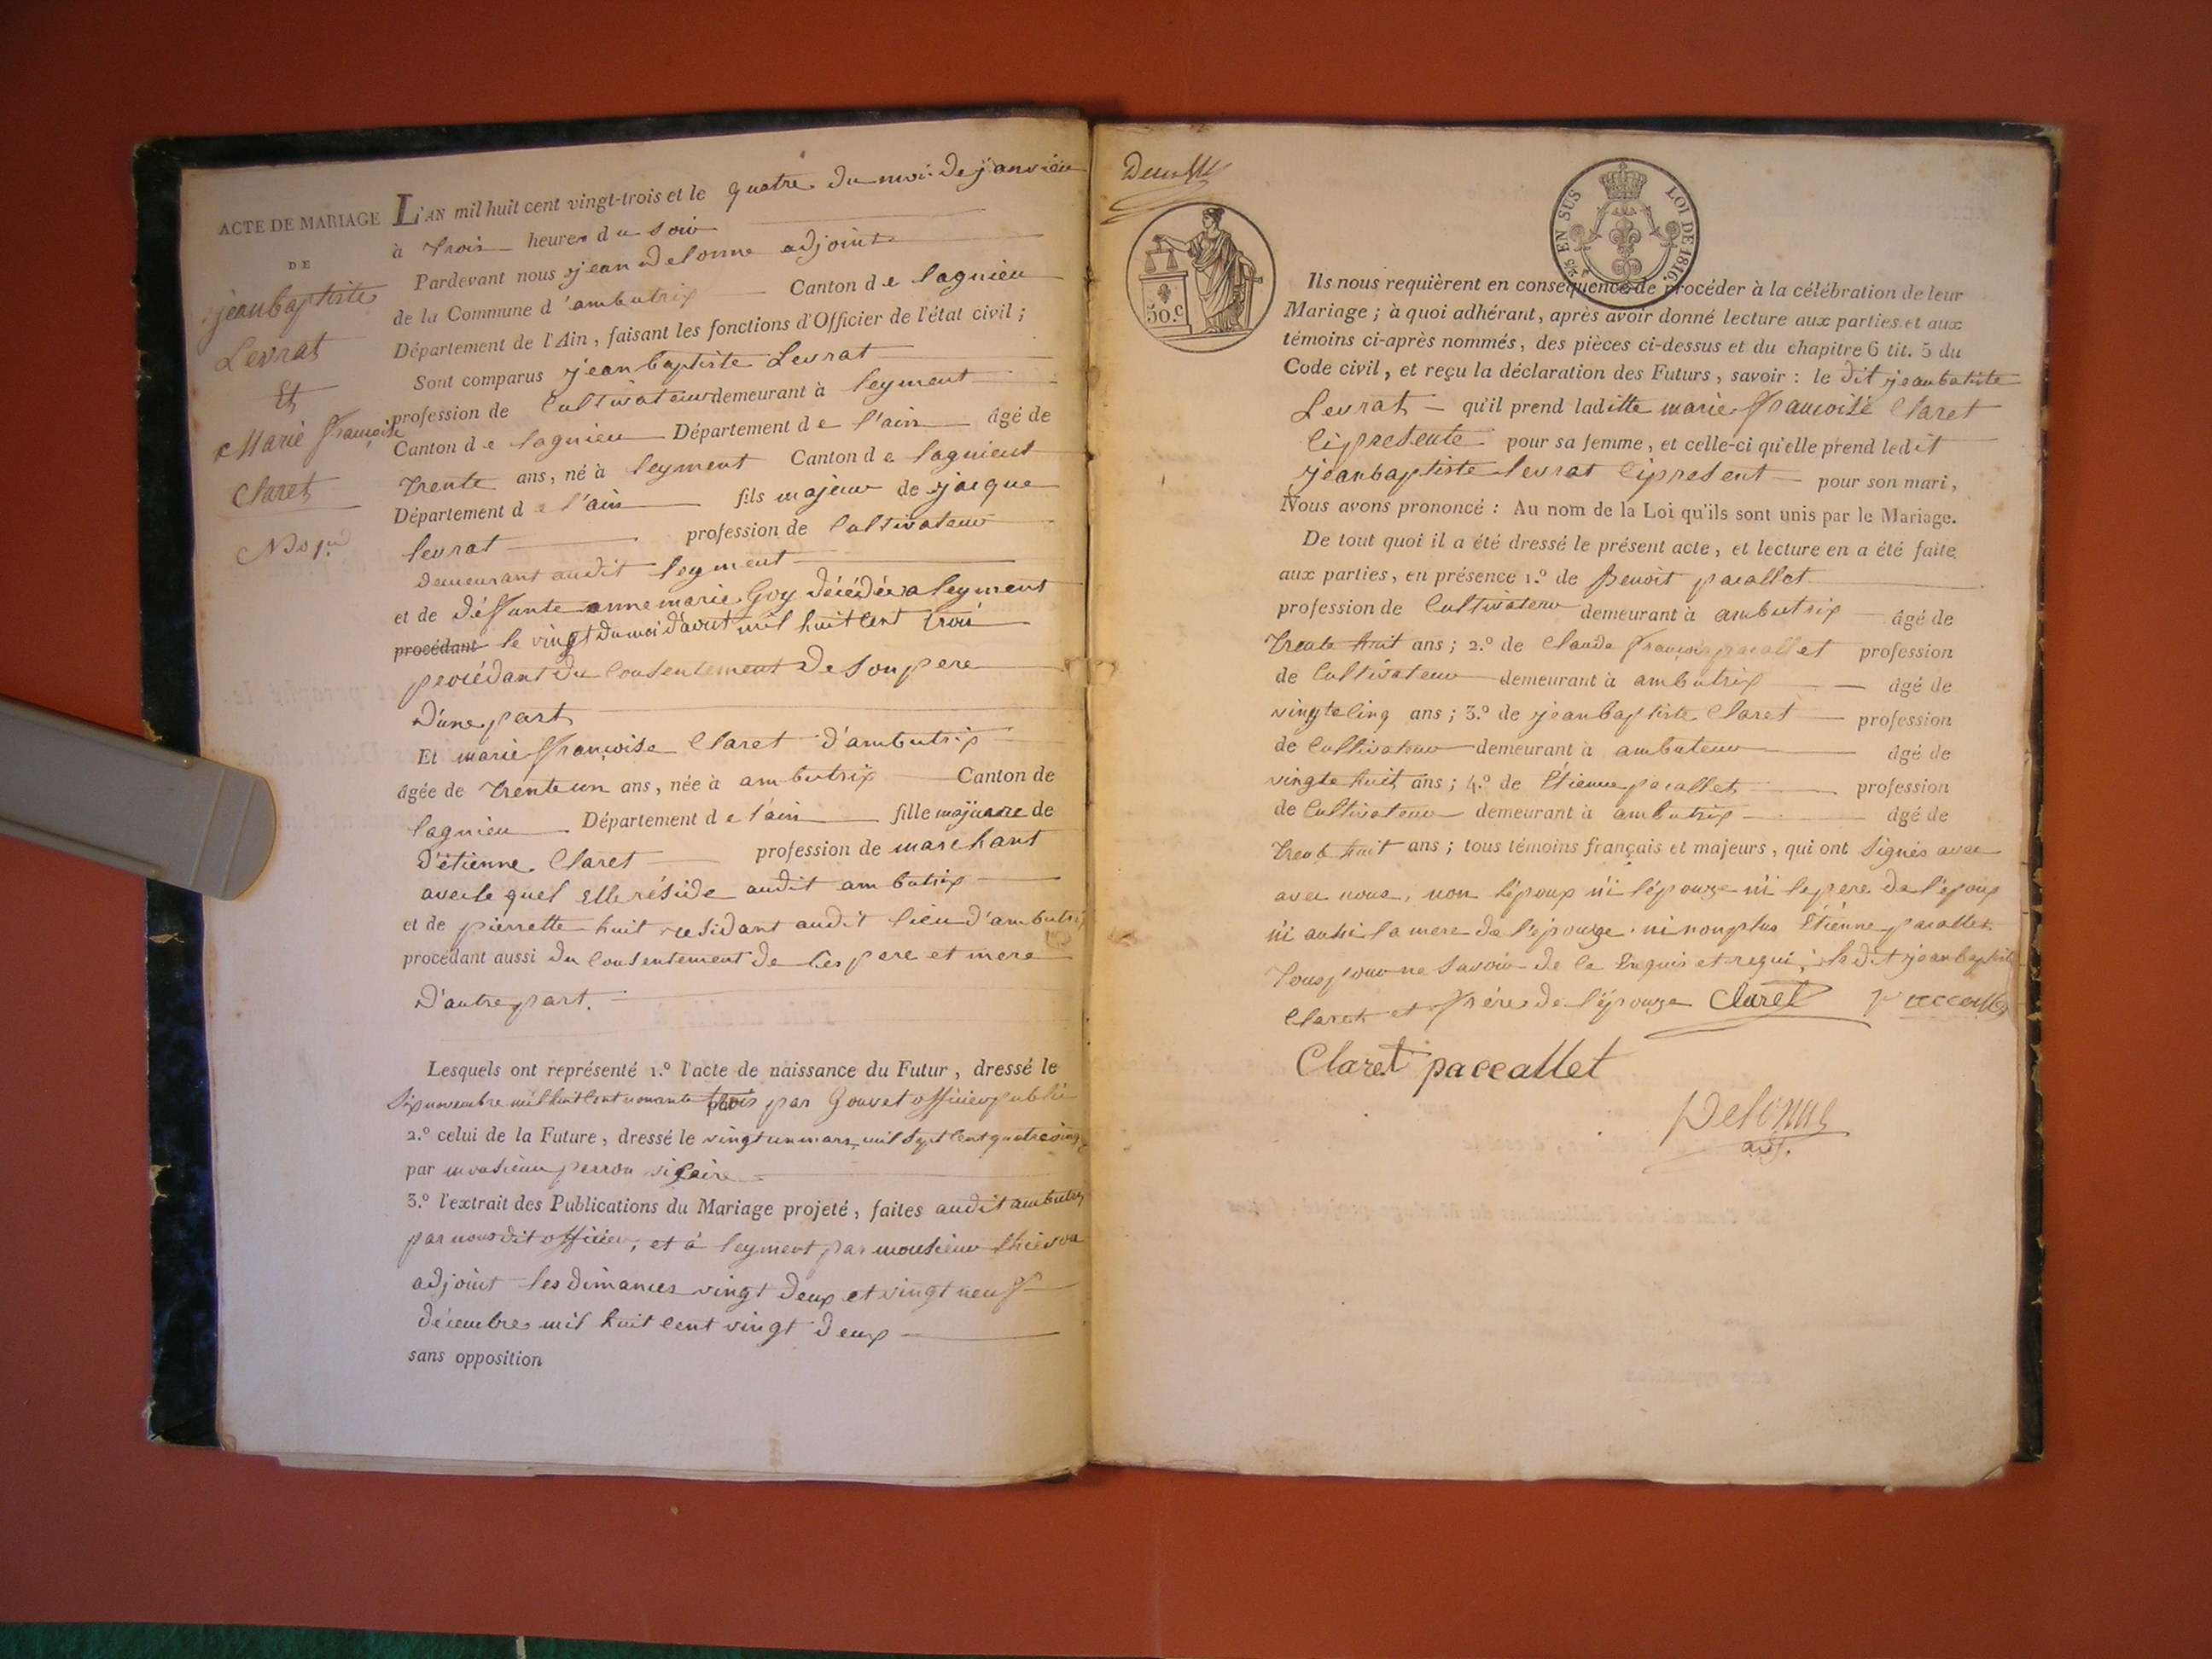 ACTE DE MARIAGE
DE
jeanbaptiste
Levrat
Et
Marie françoise
Claret
No 1er
L'AN mil huit cent vingt-trois et le quatre du moi de janvier
à trois heures du soir
Pardevant nous jean delonne adjoint
de la Commune d'ambutrix Canton de lagnieu
Département de l'Ain, faisant les fonctions d'Officier de l'état civil ;
Sont comparus jean baptiste Levrat
profession de Cultivateur demeurant à leyment
Canton de lagnieu Département de l'ain âgé de
trente ans, né à leyment Canton de lagnieu
Département de l'ain fils majeur de jacque
levrat profession de Cultivateur
demeurant audit leyment
et de déffunte anne marie Goy décédée a leyment
procédant le vingt du moi d'aout mil huit cent trois
procédant du Consentement de son pere
D'une part
Et marie françoise Claret d'ambutrix
âgée de trente un ans, née à ambutrix Canton de
lagnieu Département de l'ain fille majeure de
d'étienne Claret profession de marchant
avec le quel Elle réside audit ambutrix
et de pierrette huit residant audit lieu d'ambutrix
procédant aussi du Consentement de ses pere et mere
D'autre part.
Lesquels ont représenté 1.º l'acte de naissance du Futur, dressé le
Six novembre mil huit cent nonante par Gouvet officier public
2.º celui de la Future, dressé le vingt un mars mil sept cent quatre vingt
par monsieur perron vicaire
3.º l'extrait des Publications du Mariage projeté, faites audit ambutrix
par nous dit officier, et à leyment par monsieur
adjoint les dimances vingt deux et vingt neuf
décembre mil huit cent vingt deux
sans opposition
Deux
50.c
EN SUS LOI DE 1816.
Ils nous requièrent en conséquence de procéder à la célébration de leur
Mariage ; à quoi adhérant, après avoir donné lecture aux parties et aux
témoins ci-après nommés, des pièces ci-dessus et du chapitre 6 tit. 5 du
Code civil, et reçu la déclaration des Futurs, savoir : le dit jeanbatiste
Levrat qu'il prend laditte marie françoise Claret
Cipresente pour sa femme, et celle-ci qu'elle prend ledit
jeanbaptiste levrat Cipresent pour son mari,
Nous avons prononcé : Au nom de la Loi qu'ils sont unis par le Mariage.
De tout quoi il a été dressé le présent acte, et lecture en a été faite
aux parties, en présence 1.º de Benoit pacallet
profession de Cultivateur demeurant à ambutrix âgé de
trente huit ans ; 2.º de Claude françois pacallet profession
de Cultivateur demeurant à ambutrix âgé de
vingte cinq ans ; 3.º de jeanbaptiste Claret profession
de Cultivateur demeurant à ambuteux âgé de
vingte huit ans ; 4.º de Étienne pacallet profession
de Cultivateur demeurant à ambutrix âgé de
trente huit ans ; tous témoins français et majeurs, qui ont signés avec
avec nous, non l'époux ni l'épouze ni le pere de l'époux
ni aussi la mere de l'épouze. ni nonplus Étienne pacallet
tous pour ne savoir de ce Enquis et requi, le dit jeanbaptiste
Claret et frére de l'épouze Claret paccallet
Claret paccallet
Delonne
adj.